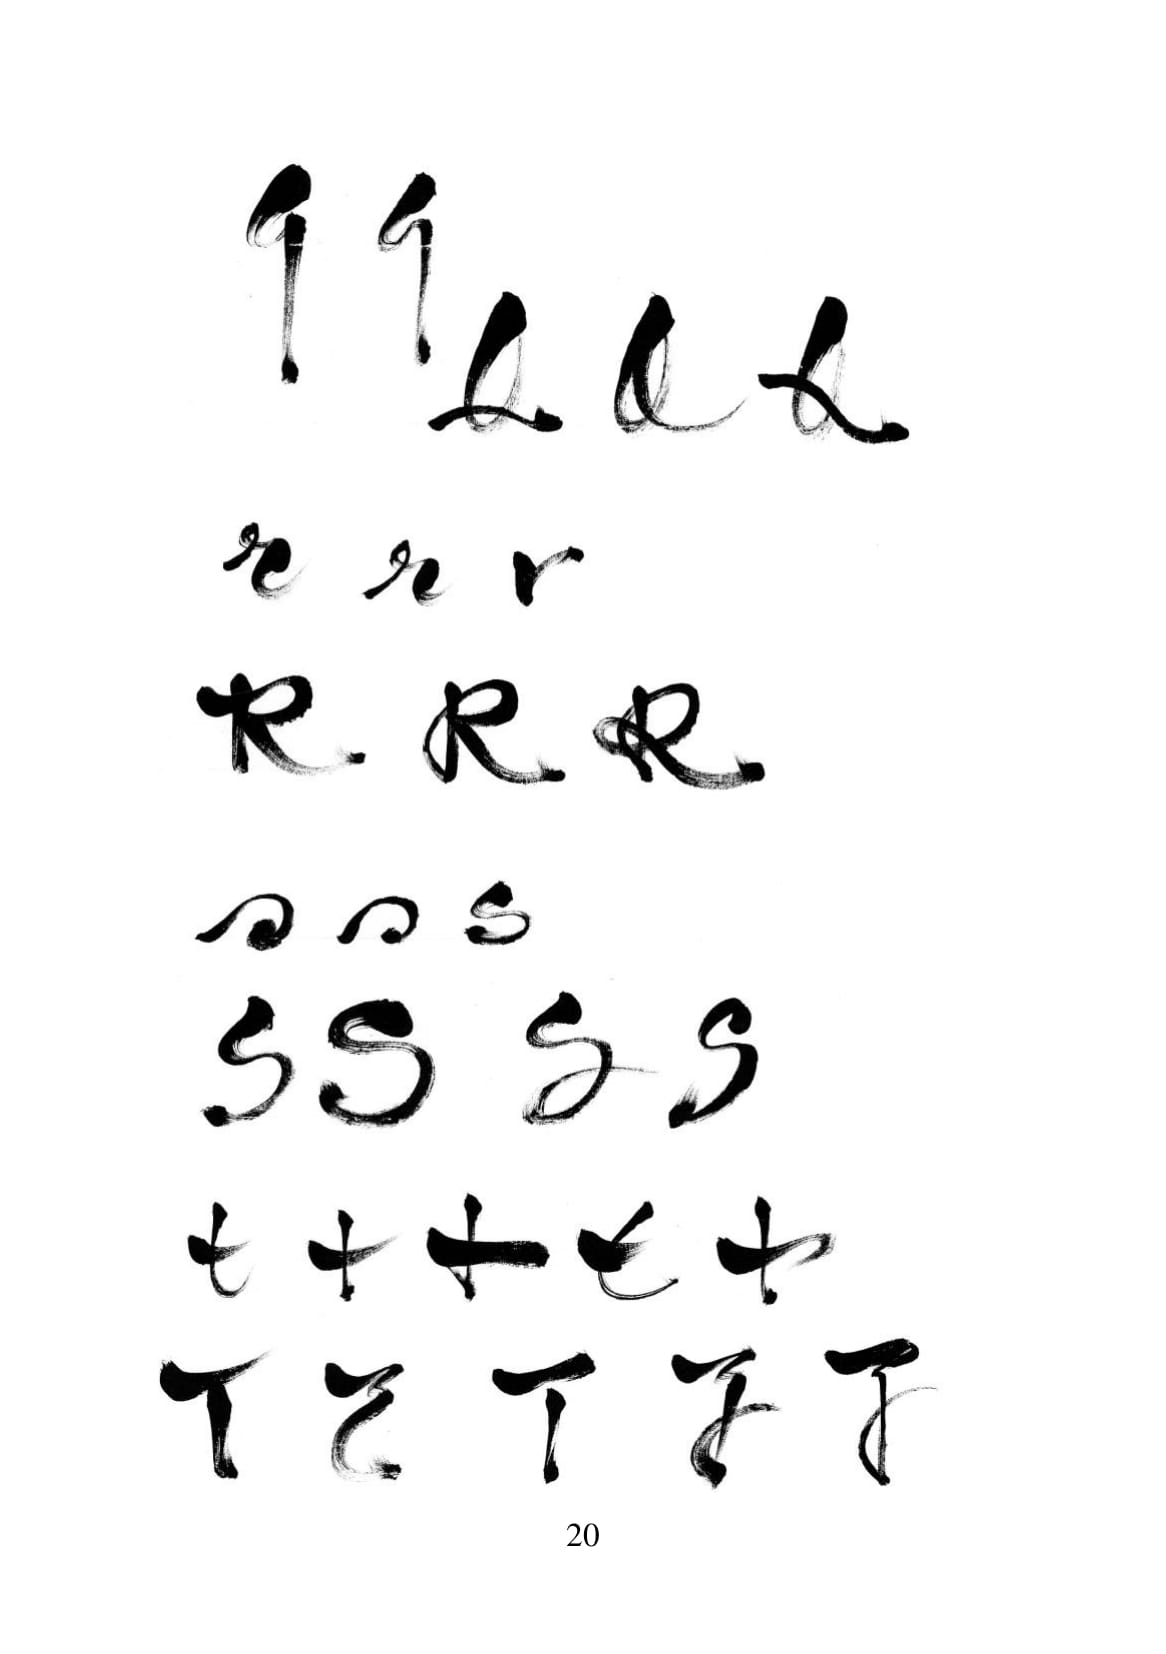 q q
Q Q Q
r r r
R R R
s s s
S S S S
t t t t t
T T T T T
20